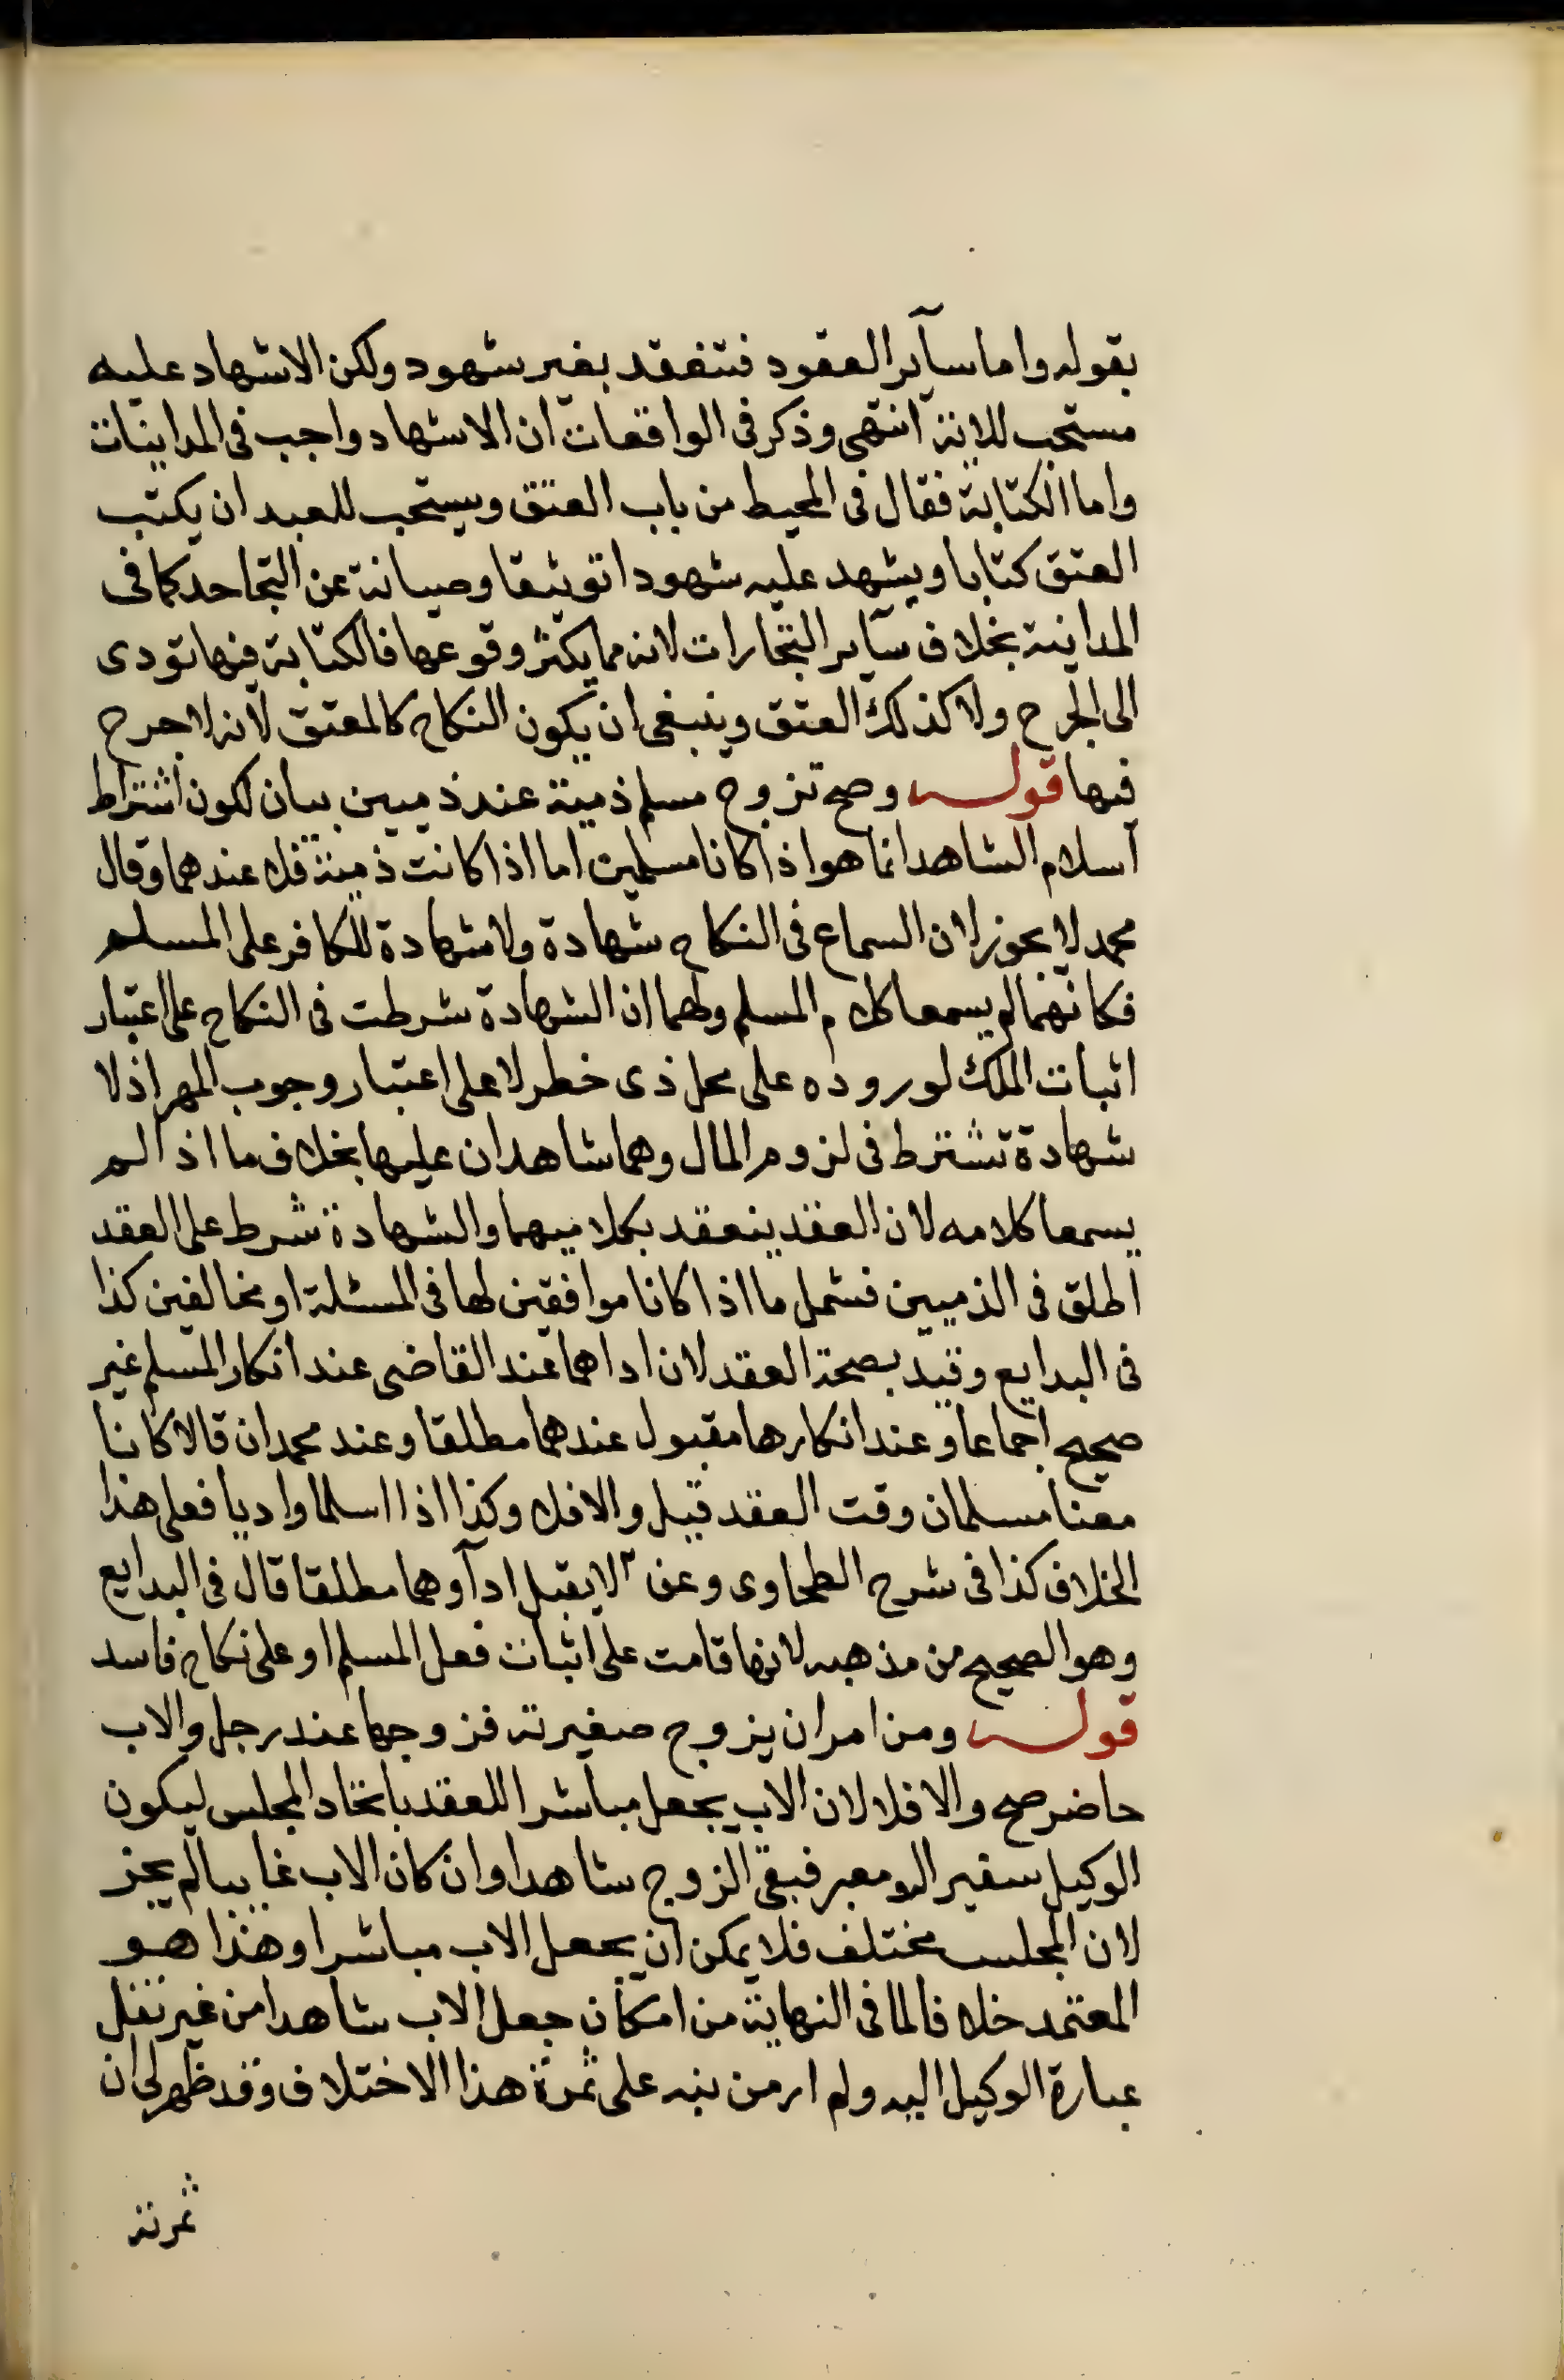 بقوله واما سآير العقود فتنعقد بغير شهود ولكن الاشهاد عليه
مستحب للاية انتهى وذكر فى الواقعات ان الاشهاد واجب فى المداينات
واما الكتابة فقال فى المحيط من باب العتق ويستحب للعبد ان يكتب
العتق كتابا ويشهد عليه شهودا توثيقا وصيانة عن التجاحد كما فى
المداينة بخلاف سآير التجارات لانه مما يكثر وقوعها فالكتابة فيها تودى
الى الحرج ولا كذلك العتق وينبغى ان يكون النكاح كالمعتق لانه لا حرج
فيها قوله وصح تزوج مسلم ذمية عند ذميين بيان لكون اشتراط
اسلام الشاهد انما هو اذا كانا مسلمين اما اذا كانت ذمية فلا عندهما وقال
محمد لا يجوز لان السماع فى النكاح شهادة ولا شهادة للكافر على المسلم
فكانهما لم يسمعا كلام المسلم ولهما ان الشهادة شرطت فى النكاح على اعتبار
اثبات الملك لوروده على محل ذى خطر لا على اعتبار وجوب المهر اذ لا
شهادة تشترط فى لزوم المال وهما شاهدان عليها بخلاف ما اذا لم
يسمعا كلامه لان العقد ينعقد بكلاميهما والشهادة شرط على العقد
اطلق فى الذميين فشمل ما اذا كانا موافقين لها فى المسئلة او مخالفين كذا
فى البدايع وقيد بصحة العقد لان اداهما عند القاضى عند انكار المسلم غير
صحيح اجماعا وعند انكارها مقبول عندهما مطلقا وعند محمد ان قالا كانا
معنا مسلمان وقت العقد قبل والا فلا وكذا اذا اسلما واديا فعلى هذا
الخلاف كذا فى شرح الطحاوى وعن لا يقبل ادآوهما مطلقا قال فى البدايع
وهو الصحيح من مذهبه لانها قامت على اثبات فعل المسلم او على نكاح فاسد
قوله ومن امر ان يزوج صغيرته فزوجها عند رجل والاب
حاضر صح والا فلا لان الاب يجعل مباشرا للعقد باتحاد المجلس ليكون
الوكيل سفيرا ومعبر فبقى الزوج شاهدا وان كان الاب غايبا لم يجز
لان المجلس مختلف فلا يمكن ان يجعل الاب مباشرا وهذا هو
المعتمد خلافا لما فى النهاية من امكان جعل الاب شاهدا من غير نقل
عبارة الوكيل اليه ولم ار من نبه على ثمرة هذا الاختلاف وقد ظهر لى ان
ثمرته